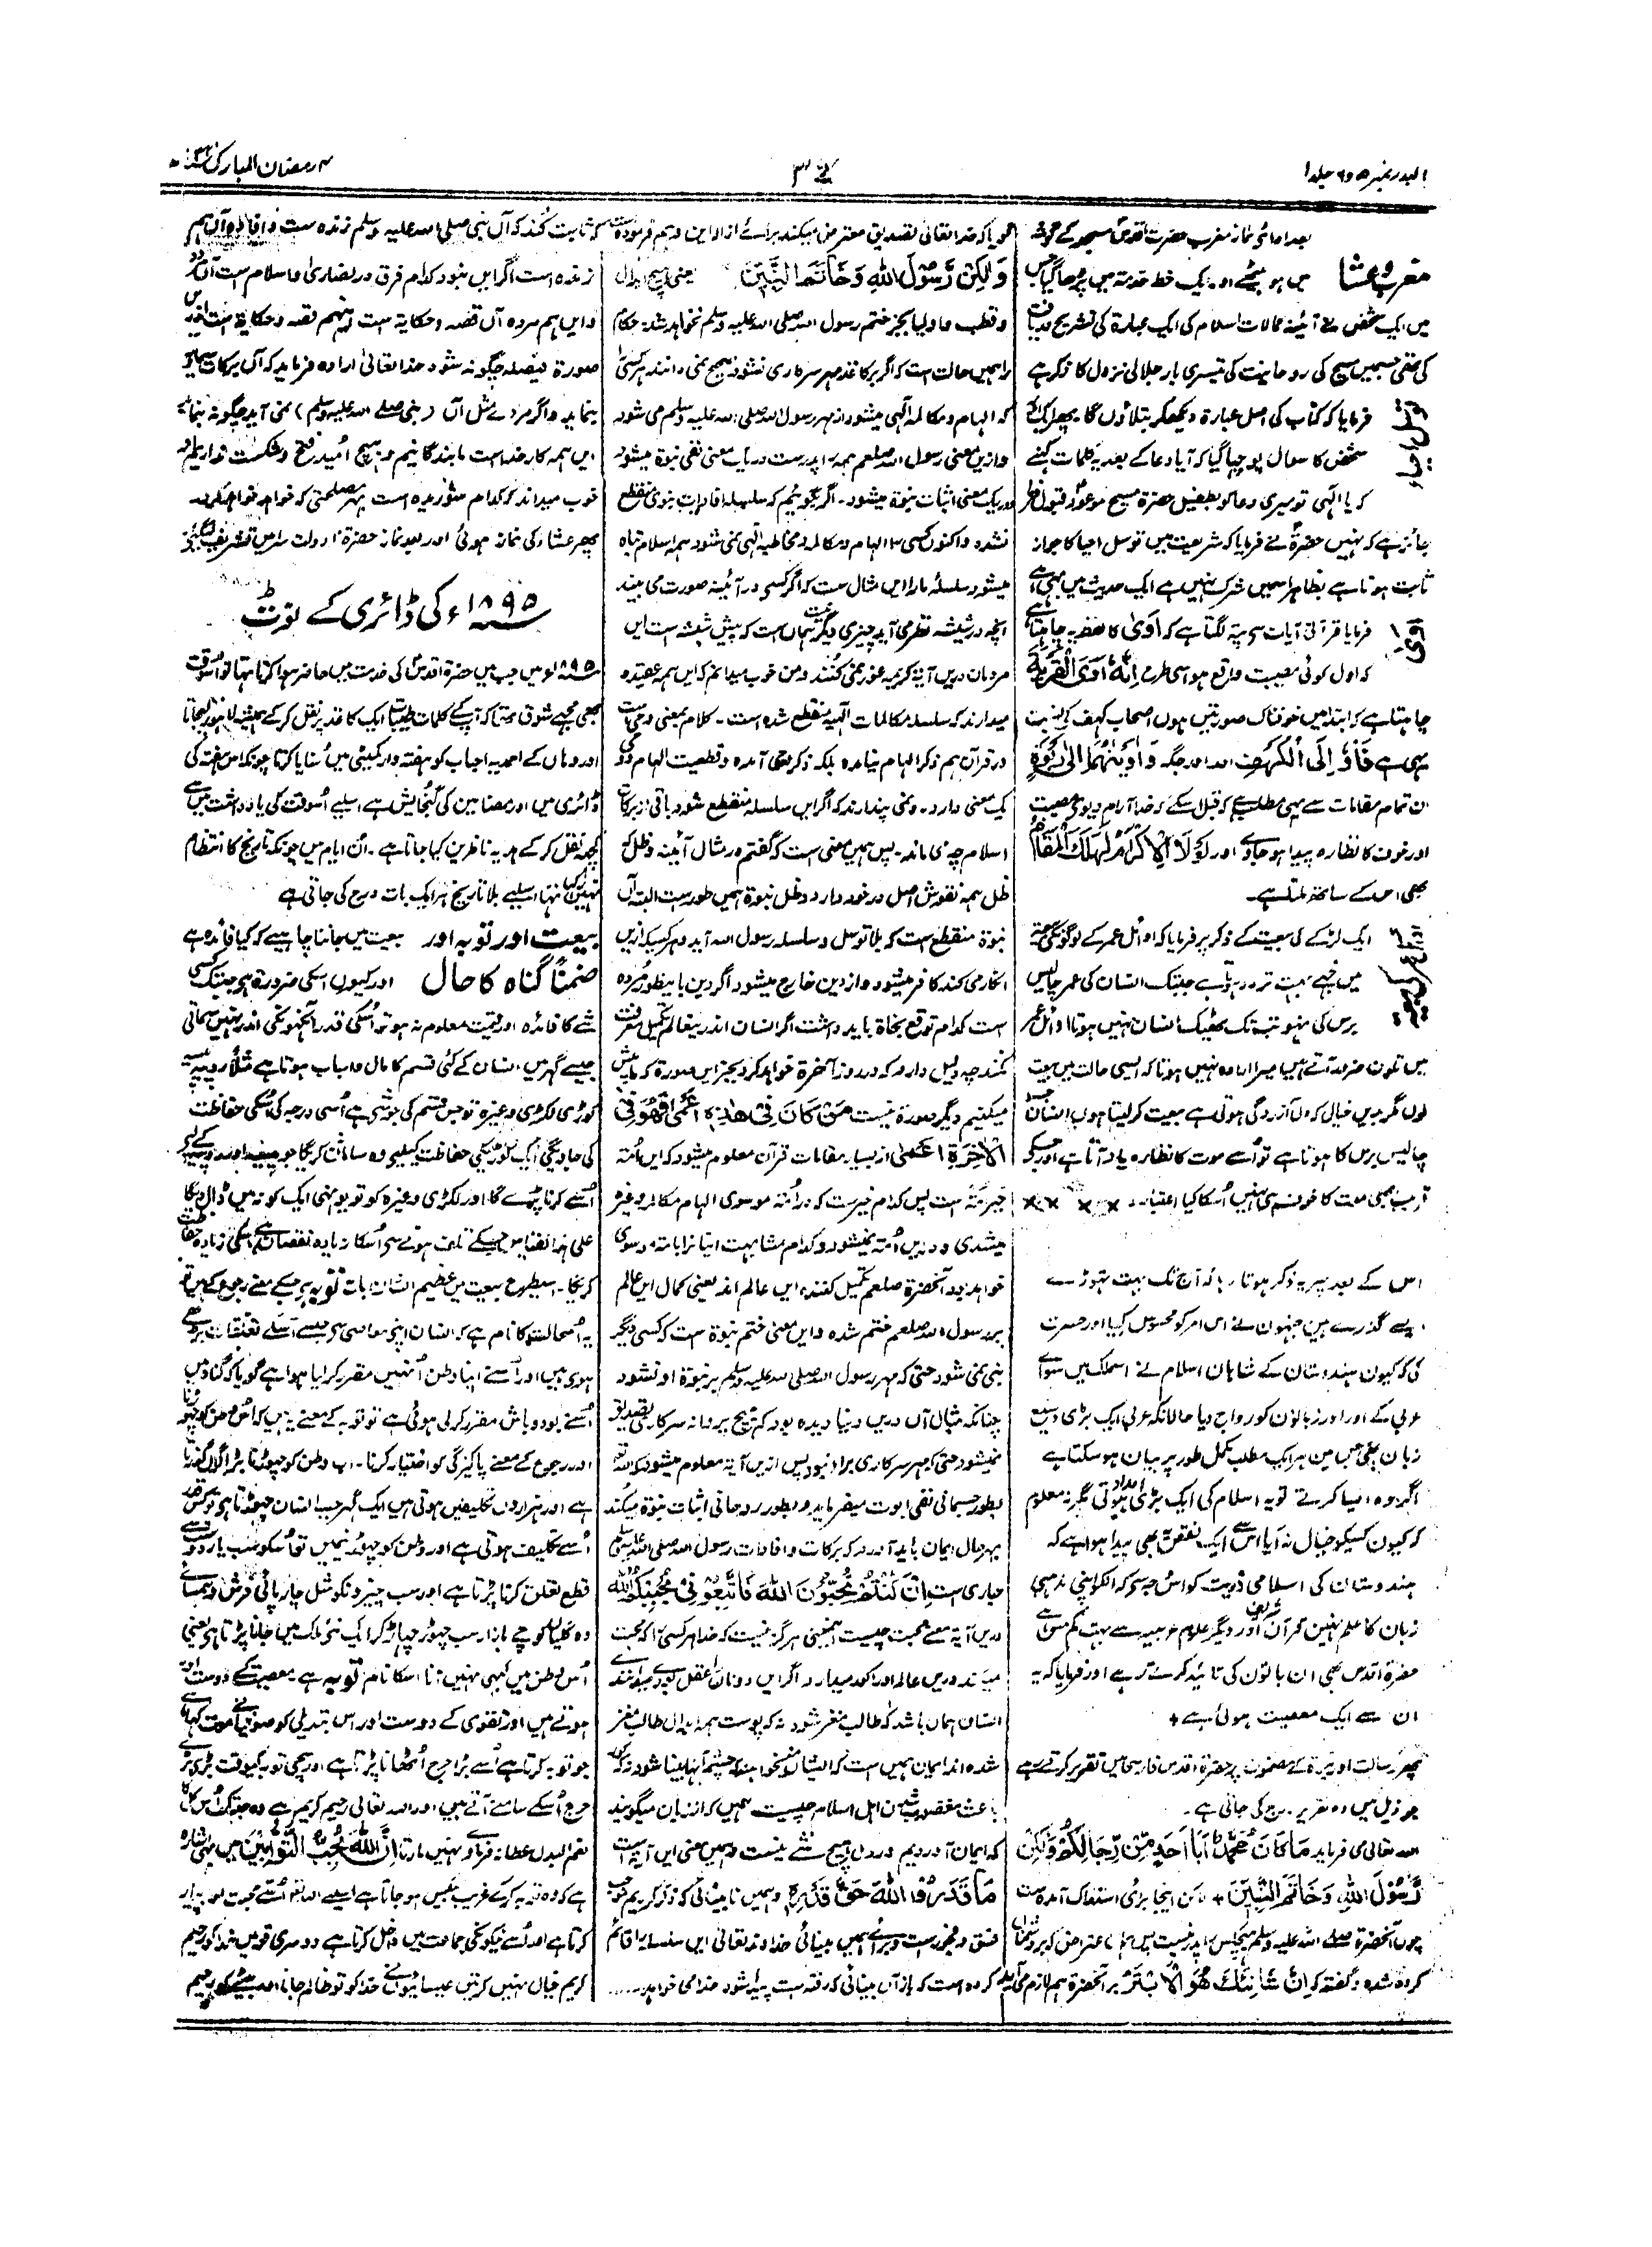 البدر نمبر ۵ و ۶ جلد ۱
۳۷
۴ رمضان المبارک
بعد ادائی نماز مغرب حضرت اقدس مسجد کے گوشہ
مغرب و عشا میں ہو بیٹھے اور ایک خط خدمت میں پڑھا گیا جس
میں ایک شخص نے آئینہ کمالات اسلام کی ایک عبارۃ کی تشریح دریافت
کی تھی جسمیں مسیح کی روحانیت کی تیسری بار جلالی نزول کا ذکر ہے
فرمایا کہ کتاب کی اصل عبارۃ دیکھکر بتلاؤں گا پھر ایک
شخص کا سوال پوچھا گیا کہ آیا دعا کے بعد یہ کلمات کہنے
کہ یا الٰہی تو میری دعا کو بطفیل حضرۃ مسیح موعود قبول فرما
جائز ہے کہ نہیں حضرۃ نے فرمایا کہ شریعت میں توسل احیا کا جواز
ثابت ہوتا ہے بظاہر اسمیں شرک نہیں ہے ایک حدیث میں بھی ہے
اوٰی
فرمایا قرآنی آیات سے پتہ لگتا ہے کہ اوٰی کا لفظ یہ چاہتا ہے
کہ اول کوئی مصیبت واقع ہو اسی طرح اِنَّهٗ اٰوَى الْقَرْيَةَ
چاہتا ہے کہ ابتدا میں خوفناک صورتیں ہوں اصحاب کہف کی نسبت
یہی ہے فَاْوٗا اِلَى الْكَهْفِ اور اور جگہ وَاٰوَيْنٰهُمَا اِلٰى رَبْوَةٍ
ان تمام مقامات سے یہی مطلب ہے کہ قبل اسکے کہ خدا آرام دیوے مصیبت
اور خوف کا نظارہ پیدا ہو جاوے اور لَوْلَا الْاِكْرَامُ لَهَلَكَ الْمَقَامُ
بھی اس کے ساتھ ملتا ہے۔
ایک لڑکے کی بیعت کے ذکر پر فرمایا کہ اوائل عمر کے لوگونکی بیعت
میں مجھے بہت تردد رہتا ہے جبتک انسان کی عمر چالیس
برس کی نہو تب تک ٹھیک انسان نہیں ہوتا اوائل عمر
میں تلون ضرور آتے ہیں میرا ارادہ نہیں ہوتا کہ ایسی حالت میں بیعت
لوں مگر بدیں خیال کہ دل آزردگی ہوتی ہے بیعت کر لیتا ہوں انسان جب
چالیس برس کا ہوتا ہے تو اسے موت کا نظارہ یاد آتا ہے اور جسکے
قریب بھی موت کا خوف ہی نہیں اسکا کیا اعتبار۔ ×× ××
اس کے بعد پھر یہ ذکر ہوتا رہا کہ آج تک بہت تہوڑے
ایسے گذرے ہین جنہون نے اس امر کو محسوس کیا اور حسرت
کی کہ کیون ہندوستان کے شاہان اسلام نے اسملک میں سوائے
عربی کے اور اور زبانون کو رواج دیا حالانکہ عربی ایک بڑی وسیع
زبان تھی جس مین ہر ایک مطلب مکمل طور پر بیان ہو سکتا ہے
اگر وہ ایسا کرتے تو یہ اسلام کی ایک بڑی امداد ہوتی مگر نہ معلوم
کہ کیون کسیکو خیال نہ آیا اس سے ایک نقص یہ بھی پیدا ہوا ہے کہ
ہندوستان کی اسلامی ذریت کو اس وجہ سے کہ انکو اپنی مذہبی
زبان کا علم نہین قرآن شریف اور دیگر علوم عربیہ سے بہت کم مس ہے
حضرۃ اقدس بھی ان باتون کی تائید کرتے رہے اور فرمایا کہ یہ
ان سے ایک معصیت ہوئی ہے +
پھر رسالت اور نبوۃ کے مضمون پر حضرۃ اقدس فارسی میں تقریر کرتے رہے
جو ذیل میں وہ تقریر درج کی جاتی ہے۔
اللہ تعالیٰ می فرماید مَا كَانَ مُحَمَّدٌ اَبَا اَحَدٍ مِّنْ رِّجَالِكُمْ وَلٰكِنْ
رَّسُوْلَ اللّٰهِ وَخَاتَمَ النَّبِيّٖنَ + لٰکن اینجا برائے استدراک آمدہ ست
چوں آنحضرۃ صلی اللہ علیہ وسلم ہیچکس را پدر نیست پس ہماں اعتراض کہ بر دشمناں
کردہ شدہ و گفتہ کہ اِنَّ شَانِئَكَ هُوَ الْاَبْتَرُ بر آنحضرۃ ہم لازم می آید
گویا کہ خدا تعالیٰ تصدیق معترض میکند برائے ازالہ این وہم فرمودہ ست
وَلٰكِنْ رَّسُوْلَ اللّٰهِ وَخَاتَمَ النَّبِيّٖنَ یعنی ہیچ ابدال
و قطب و اولیا بجز ختم رسول اللہ صلی اللہ علیہ وسلم نخواہد شد حکام
را ہمیں حالت ست کہ اگر بر کاغذ مہر سرکاری نشود ہیچ نمی دانند ہر کسی را
کہ الہام و مکالمہ الٰہی میشود از مہر رسول اللہ صلی اللہ علیہ وسلم می شود
و ازین معنی رسول اللہ صلعم ہمہ را پدرست در باب معنی نفی نبوۃ میشود
و در یک معنی اثبات نبوۃ میشود۔ اگر بگوئیم کہ سلسلہ افادات نبوی منقطع
شدہ و اکنوں کسی را الہام و مکالمہ و مخاطبہ الٰہی نمی شود ہمہ اسلام تباہ
میشود سلسلہ ما را ایں مثال ست کہ اگر کسی در آئینہ صورت می بیند
آنچہ در شیشہ نظر می آید چیزی دیگر نیست ہمان ست کہ پیش شیشہ ست ایں
مردمان دریں آیۃ کریمہ غور نمی کنند و من خوب میدانم کہ ایں ہمہ عقیدہ
میدارند کہ سلسلہ مکالمات الٰہیہ منقطع شدہ است۔ کلام بمعنی وحی است
در قرآن ہم ذکر الہام نیامدہ بلکہ ذکر وحی آمدہ و قطعیت الہام و وحی
یک معنی دارد۔ و نمی پندارند کہ اگر ایں سلسلہ منقطع شود باقی از برکات
اسلام چہ می ماند۔ پس ہمیں معنی ست کہ گفتم در مثال آئینہ و ظل کہ
ظل ہمہ نقوش اصل در خود دارد و ظل نبوۃ ہمیں طور ست البتہ آں
نبوۃ منقطع ست کہ بلا توسل و سلسلہ رسول اللہ آید و ہر کسیکہ ازیں
انکار می کند کافر میشود و از دین خارج میشود اگر دین با بیطور مردہ
ست کدام توقع نجاۃ باید داشت اگر انسان اندرینعالم تکمیل معرفت
نکند چہ دلیل دارد کہ در روز آخرۃ خواہد کرد بجز این صورۃ کہ ما پیش
میکنیم دیگر صورۃ نیست مَنْ كَانَ فِيْ هٰذِهٖٓ اَعْمٰى فَهُوَ فِي
الْاٰخِرَةِ اَعْمٰى از بسیار مقامات قرآن معلوم میشود کہ ایں امۃ
خیر امۃ ست پس کدام خیر ست کہ در امۃ موسوی الہام مکالمہ وغیرہ
میشدی و دریں امۃ نمیشود و کدام مشابہت اینا نرا با امۃ موسوی
خواہد بود آنحضرۃ صلعم تکمیل کنندہ ایں عالم اند یعنی کمال ایں عالم
بر رسول اللہ صلعم ختم شدہ و ایں معنی ختم نبوۃ ست کہ کسی دیگر
نبی نمی شود حتی کہ مہر رسول اللہ صلی اللہ علیہ وسلم بر نبوۃ او نشود
چنانکہ مثال آں دریں دنیا دیدہ بود کہ ہیچ پروانہ سرکاری تصدیق
نمیشود حتی کہ مہر سرکاری براو نبود پس ازیں آیۃ معلوم میشود کہ اللہ
بطور جسمانی نفی ابوت میفرماید و بطور روحانی اثبات نبوۃ میکند
بہر حال ایمان باید آورد کہ برکات و افادات رسول اللہ صلی اللہ علیہ وسلم
جاری ست اِنْ كُنْتُمْ تُحِبُّوْنَ اللّٰهَ فَاتَّبِعُوْنِيْ يُحْبِبْكُمُ اللّٰهُ
دریں آیۃ معنے محبت چیست اینمعنی ہرگز نیست کہ خدا ہر کسی را کہ محبت
میکند دریں عالم او را کور میدارد اگر ایں
انسان ہماں باشد کہ طالب مغز شود نہ کہ پوست ہمہ ابدال طالب مغز
شدہ اند ایمان ہمیں ست کہ
باعث مغضوب شدن اہل اسلام چیست ہمیں کہ از زبان میگویند
کہ ایمان آوردیم و در دل ہیچ شے نیست و ہمیں معنی ایں آیۃ ست
مَا قَدَرُوا اللّٰهَ حَقَّ قَدْرِهٖ و ہمیں نابینائی کہ ذکر کردیم موجب
فسق و فجور ست و برائے ہمیں بینائی خداوند تعالیٰ ایں سلسلہ را قائم
کردہ است کہ باز آں بینائی کہ رفتہ ست پیدا شود خدا می خواہد.....
کہ ثابت کند کہ آں نبی صلی اللہ علیہ وسلم زندہ ست و افادہ آں ہم
زندہ است اگر ایں نبود کدام فرق در نصاریٰ و اسلام ست آں ہم مردہ
و ایں ہم مردہ آں قصہ و حکایۃ ست و اینہم قصہ و حکایۃ ست اندریں
صورۃ فیصلہ چگونہ شود خدا تعالیٰ ارادہ فرماید کہ آں برکات سماویہ
بنماید و اگر مردے مثل آں (نبی صلے اللہ علیہ وسلم) نمی آید چگونہ بنماید
ایں ہمہ کار خداست ما بندگانیم و ہیچ امید فتح و شکست نداریم او
خوب میداند کہ کدام منظور شدہ است بہر مصلحتی کہ خواہد خواہد کرد۔
پھر عشاء کی نماز ہوئی اور بعد نماز حضرۃ دولت سرا میں تشریف لیگئے
۱۸۹۵ء کی ڈائری کے نوٹ
۱۸۹۵ء میں جب میں حضرۃ اقدس کی خدمت میں حاضر ہوا کرتا تہا تو اسوقت
بھی مجھے شوق تھا کہ آپ کے کلمات طیبات ایک کاغذ پر نقل کر کے ہمیشہ لاہور لیجاتا
اور وہاں کے احمدیہ احباب کو ہفتہ وار کمیٹی میں سنایا کرتا چونکہ اس ہفتہ کی
ڈائری میں اور مضامین کی گنجایش ہے اسلیے اسوقت کی یادداشت میں سے
کچھ نقل کر کے ہدیہ ناظرین کیا جاتا ہے۔ ان ایام میں چونکہ تاریخ کا انتظام
نہیں رکھا تہا اسلیے بلا تاریخ ہر ایک بات درج کی جاتی ہے
بیعت اور توبہ اور بیعت میں جاننا چاہیے کہ کیا فائدہ ہے
ضمناً گناہ کا حال اور کیوں اسکی ضرورۃ ہے جبتک کسی
شے کا فائدہ اور قیمت معلوم نہ ہو تو اسکی قدر آنکھونکی اندر نہیں سماتی
جیسے گہر میں انسان کے کئی قسم کا مال و اسباب ہوتا ہے مثلاً روپیہ پیسہ
کوڑی لکڑی وغیرہ تو جس قسم کی جو شے ہے اسی درجہ کی اسکی حفاظت
کی جاویگی ایک کوڑی کی حفاظت کیلیے وہ سامان نکریگا جو پیسہ اور روپیہ کے لیے
اسے کرنا پڑے گا اور لکڑی وغیرہ کو تو یونہی ایک کونہ میں ڈال دیگا
علیٰ ہذا القیاس جسکے تلف ہونے سے اسکا زیادہ نقصان ہے اسکی زیادہ حفاظت
کریگا۔ اسیطرح بیعت میں عظیم الشان بات توبہ ہے جسکے معنے رجوع کے ہیں توبہ
اس حالت کا نام ہے کہ انسان اپنی معاصی سے جنسے اسکے تعلقات بڑھے
ہوئے ہیں اور اسنے اپنا وطن انہیں مقرر کر لیا ہوا ہے گویا کہ گناہ میں
اسنے بود و باش مقرر کر لی ہوئی ہے تو توبہ کے معنے یہ ہیں کہ اس وطن کو چہوڑنا
اور رجوع کے معنے پاکیزگی کو اختیار کرنا۔ اب وطن کو چہوڑنا بڑا گراں گذرتا
ہے اور ہزاروں تکلیفیں ہوتی ہیں ایک گہر جب انسان چہوڑتا ہے تو کس قدر
اسے تکلیف ہوتی ہے اور وطن کو چہوڑنے میں تو اسکو سب یار دوستوں سے
قطع تعلق کرنا پڑتا ہے اور سب چیزونکو مثل چارپائی فرش و ہمسائے
وہ گلیاں کوچے بازار سب چہوڑ چہاڑ کر ایک نئے ملک میں جانا پڑتا ہے یعنی
اس وطن میں کبھی نہیں آنا اسکا نام توبہ ہے۔ معصیت کے دوست اور
ہوتے ہیں اور تقویٰ کے دوست اور اس تبدیلی کو صوفیانے موت کہا ہے
جو توبہ کرتا ہے اسے بڑا حرج اٹھانا پڑتا ہے اور سچی توبہ کیوقت بڑے بڑے
حرج اسکے سامنے آتے ہیں اور اللہ تعالیٰ رحیم کریم ہے وہ جبتک اس کل کا
نعم البدل عطا نہ فرماوے نہیں مارتا اِنَّ اللّٰهَ يُحِبُّ التَّوَّابِيْنَ میں یہی اشارہ
ہے کہ وہ توبہ کر کے غریب بیکس ہو جاتا ہے اسلیے اللہ تعالیٰ اسے محبت اور پیار
کرتا ہے اور اسے نیکونکی جماعت میں داخل کرتا ہے دوسری قومیں خدا کو رحیم
کریم خیال نہیں کرتیں عیسائیونے خدا کو تو ظالم جانا اور بیٹے کو رحیم